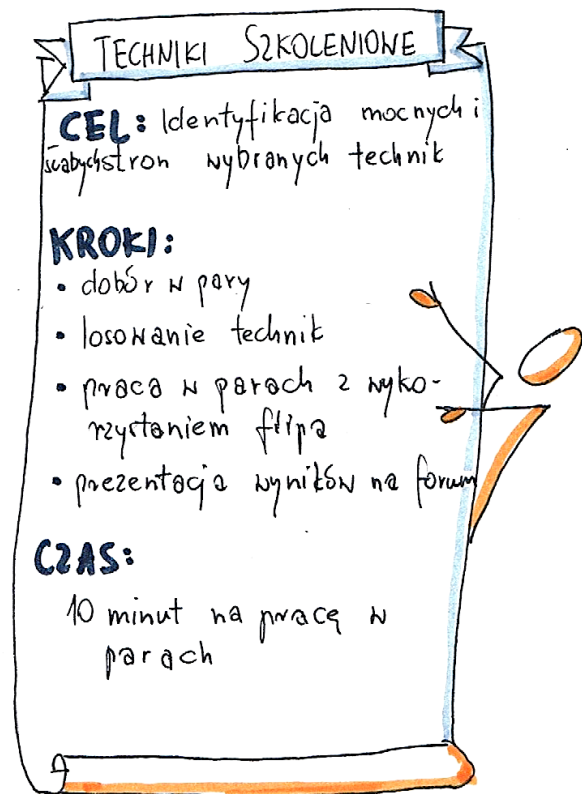 TECHNIKI SZKOLENIOWE
CEL: Identyfikacja mocnych i
słabych stron wybranych technik
KROKI:
• dobór w pary
• losowanie technik
• praca w parach z wyko-
rzystaniem flipa
• prezentacja wyników na forum
CZAS:
10 minut na pracę w
parach